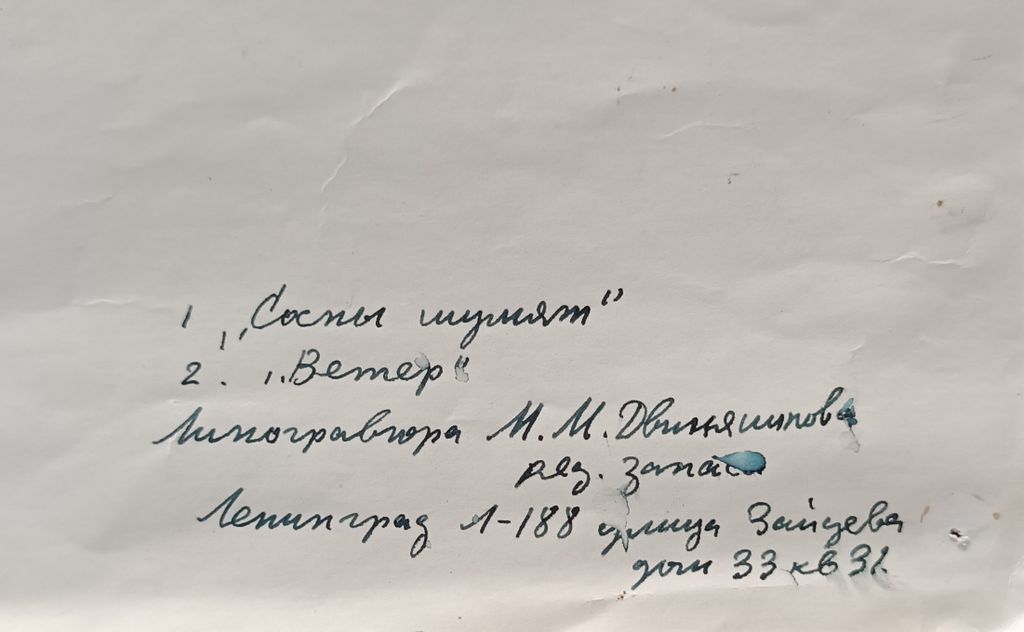 1 „Сосны шумят"
2. „Ветер"
Линогравюра М.М.Двиняшинова
ряд. запаса
Ленинград Л-188 улица Зайцева
дом 33 кв 31